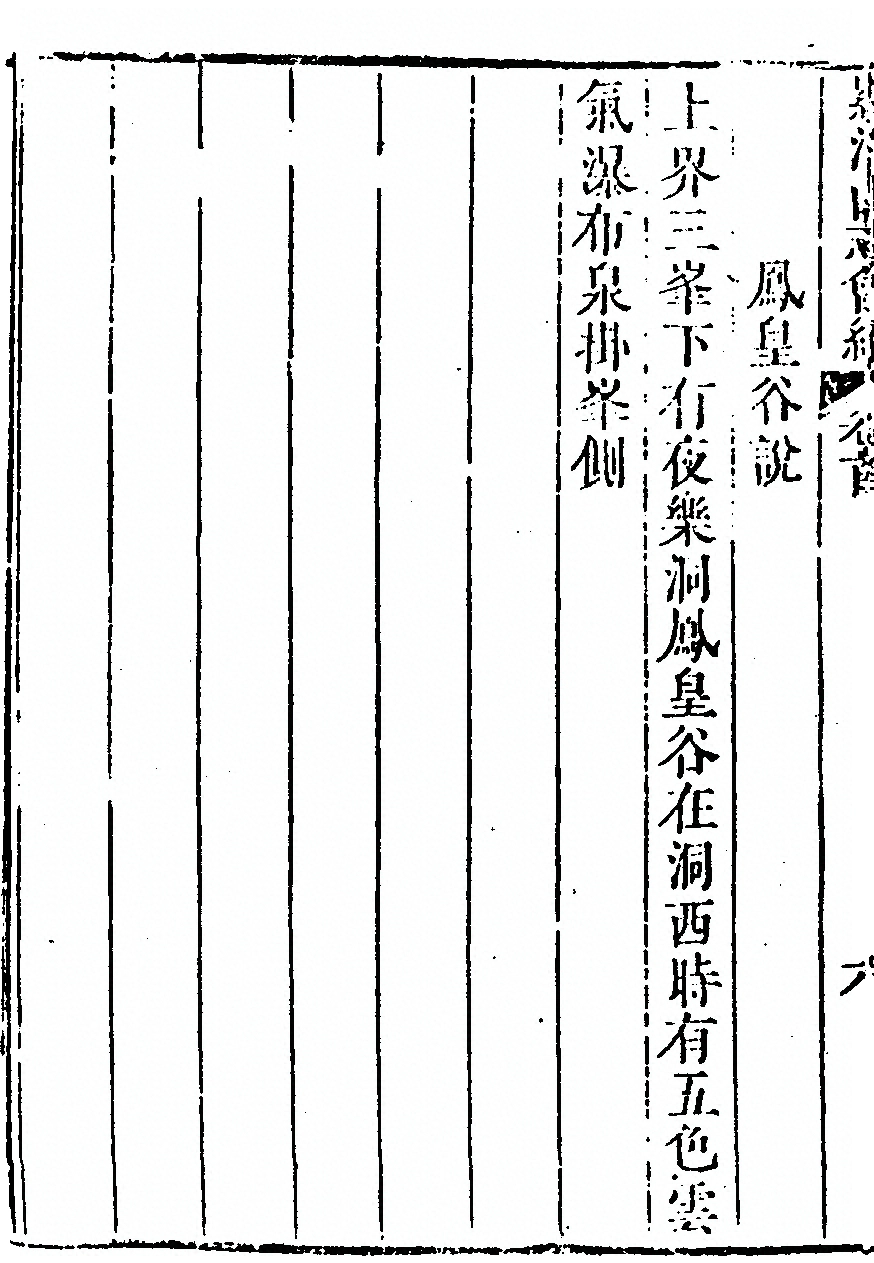 鳳皇谷說
上界三峯下有夜樂洞鳳皇谷在洞西時有五色雲
氣瀑布泉掛峯側